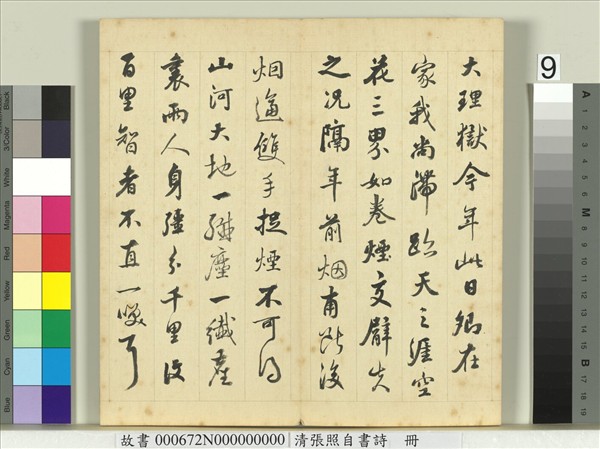 大理獄今年此日卿在
家我尚滯跡天之涯空
花三界如卷煙交臂失
之況隔年前烟甫斷後
烟逼雙手捉煙不可得
山河大地一纖塵一纖塵
裏兩人身疆分千里
百里智者不直一咲耳
9
Black
3/Color
White
Magenta
Red
Yellow
Green
Cyan
Blue
A 1 2 3 4 5 6 M 8 9 10 11 12 13 14 15 B 17 18 19
故書 000672N000000000 清張照自書詩 冊